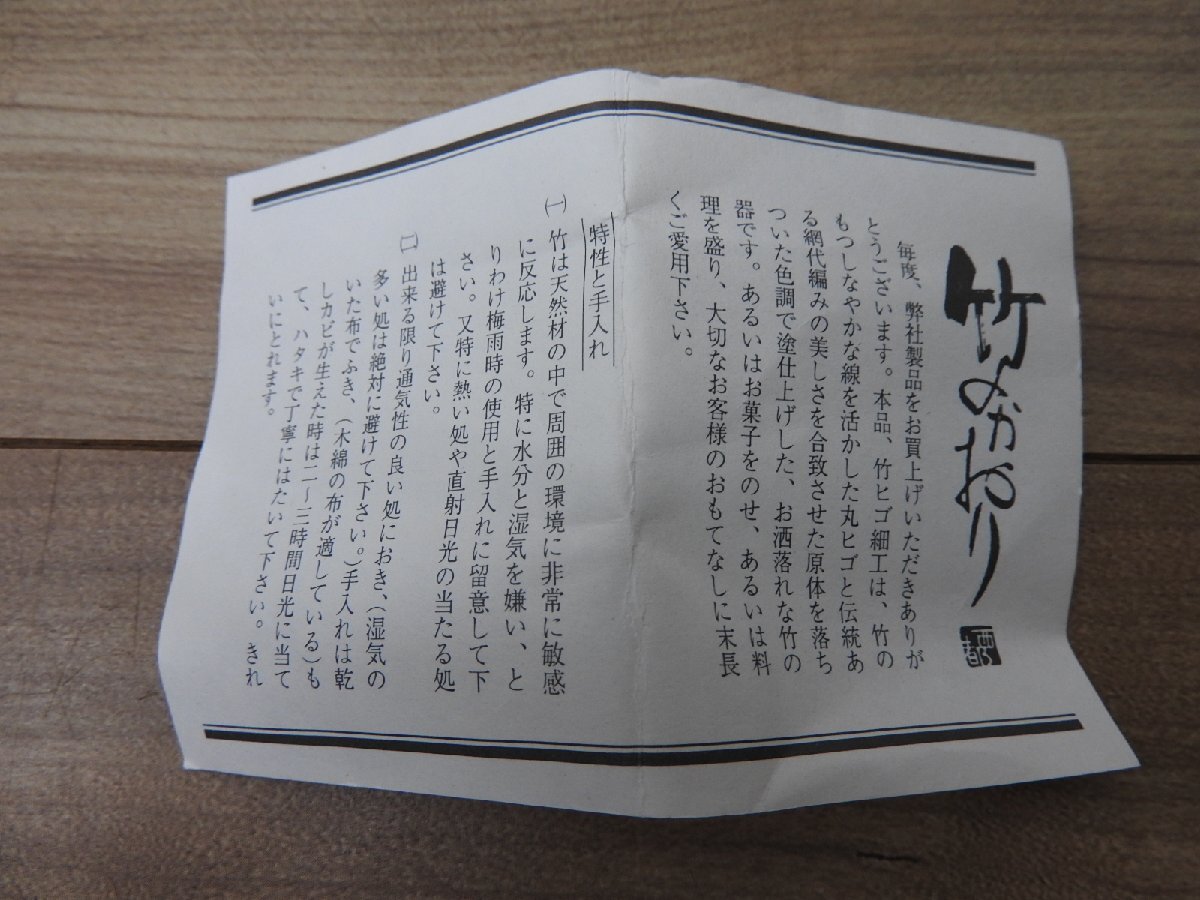 竹のかおり
毎度、弊社製品をお買上げいただきありが
とうございます。本品、竹ヒゴ細工は、竹の
もつしなやかな線を活かした丸ヒゴと伝統あ
る網代編みの美しさを合致させた原体を落ち
ついた色調で塗仕上げした、お洒落れな竹の
器です。あるいはお菓子をのせ、あるいは料
理を盛り、大切なお客様のおもてなしに末長
くご愛用下さい。
特性と手入れ
㈠ 竹は天然材の中で周囲の環境に非常に敏感
に反応します。特に水分と湿気を嫌い、と
りわけ梅雨時の使用と手入れに留意して下
さい。又特に熱い処や直射日光の当たる処
は避けて下さい。
㈡ 出来る限り通気性の良い処におき、(湿気の
多い処は絶対に避けて下さい。)手入れは乾
いた布でふき、(木綿の布が適している)も
しカビが生えた時は二〜三時間日光に当て
て、ハタキで丁寧にはたいて下さい。きれ
いにとれます。